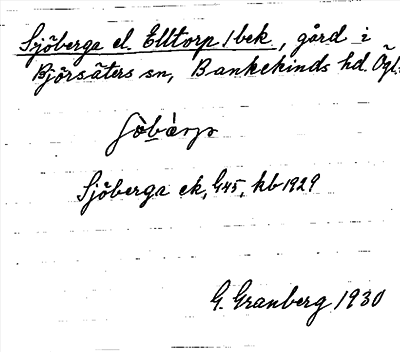 Sjöberga el. Elltorp /bek, gård i
Björsäters sn, Bankekinds hd. Ögl.
Sjöberga ek, G45, kb 1929
G. Granberg 1930